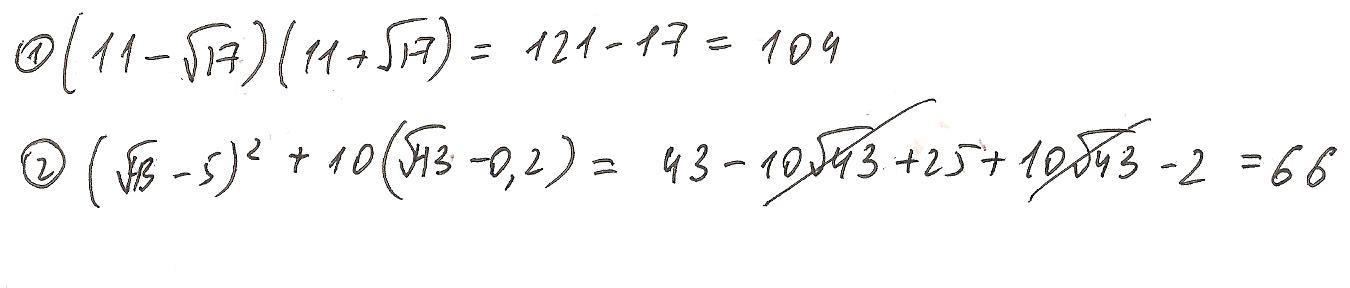 ① (11-√17)(11+√17) = 121-17 = 104
② (√43-5)² + 10(√43-0,2) = 43-10√43+25+10√43-2 = 66